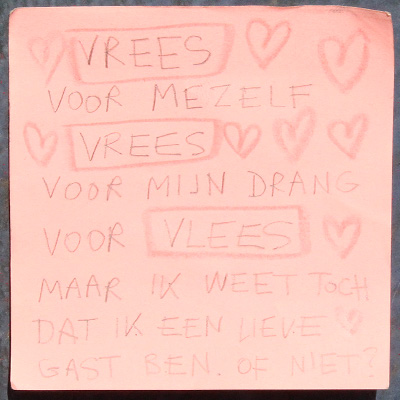 VREES
VOOR MEZELF
VREES
VOOR MIJN DRANG
VOOR VLEES
MAAR IK WEET TOCH
DAT IK EEN LIEVE
GAST BEN. OF NIET?